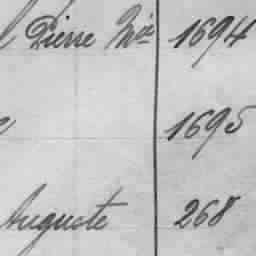 Pierre Nie 1694
1695
Auguste 268